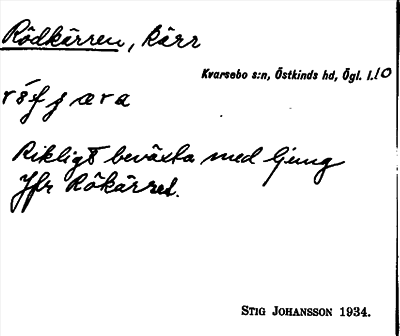 Rödkärren, kärr
Kvarsebo s:n, Östkinds hd, Ögl. l. 10
Rikligt beväxta med ljung
Jfr Rökärret.
STIG JOHANSSON 1934.